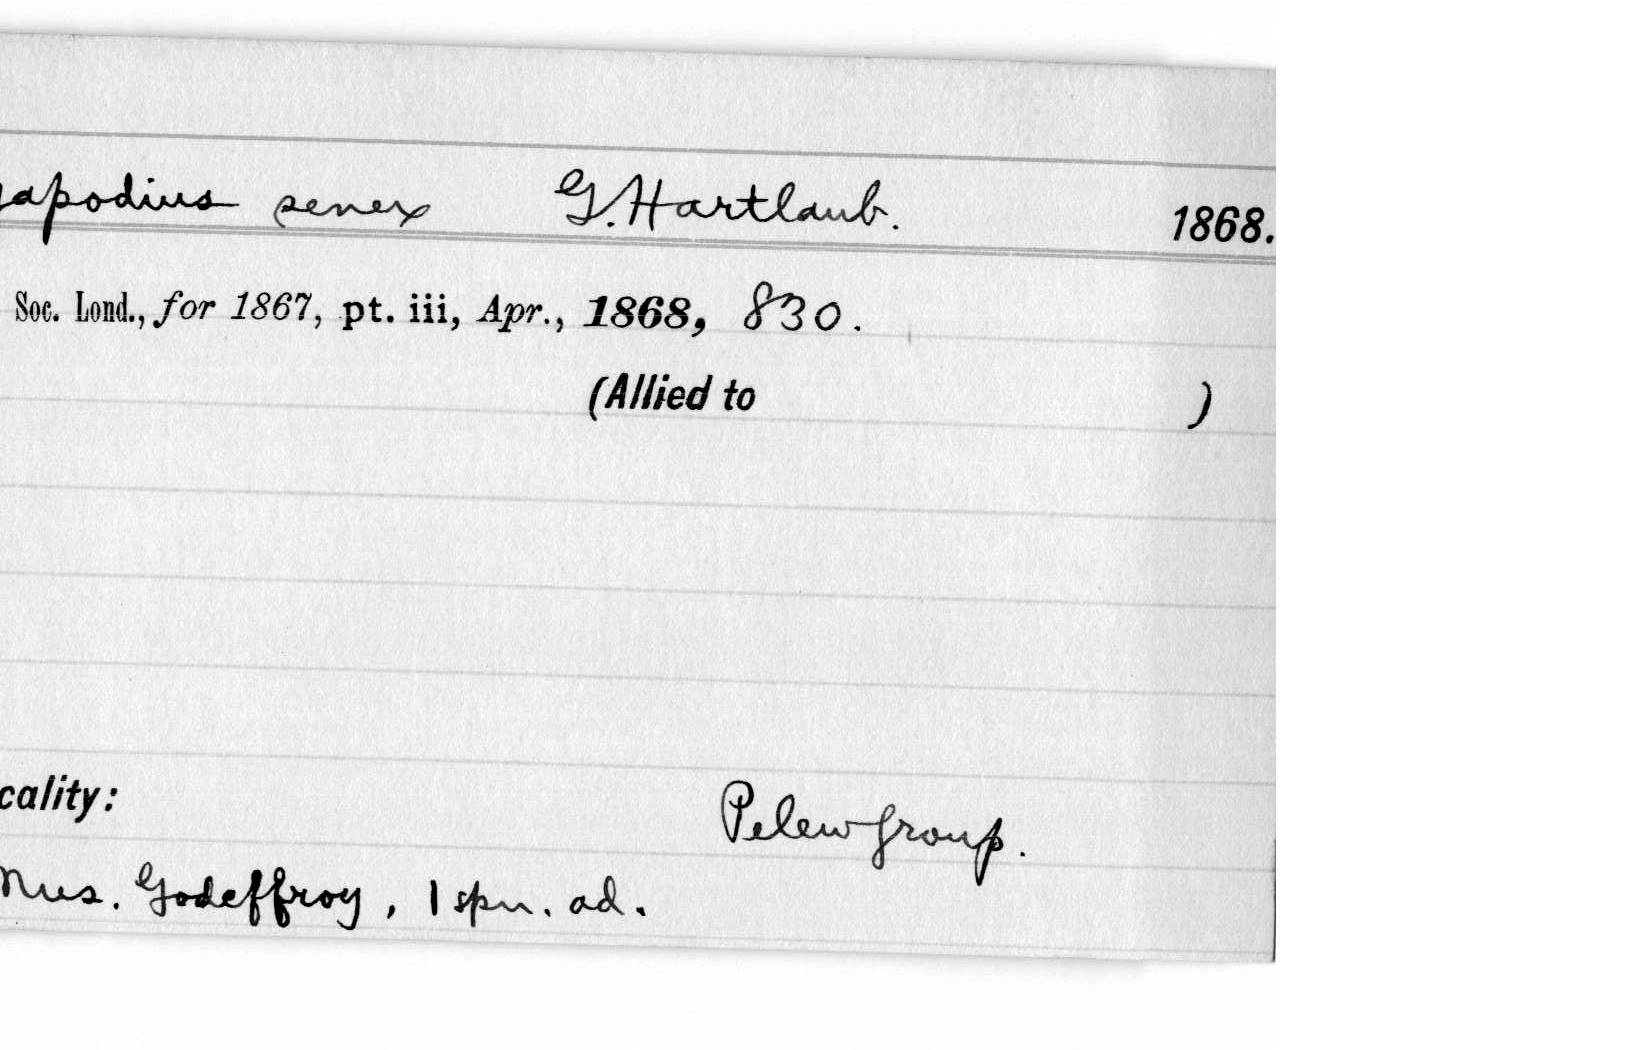 gapodius senex G. Hartlaub. 1868.
Soc. Lond., for 1867, pt. iii, Apr., 1868, 830.
(Allied to )
cality:
Pelew group.
Mus. Godeffroy, 1 spn. ad.